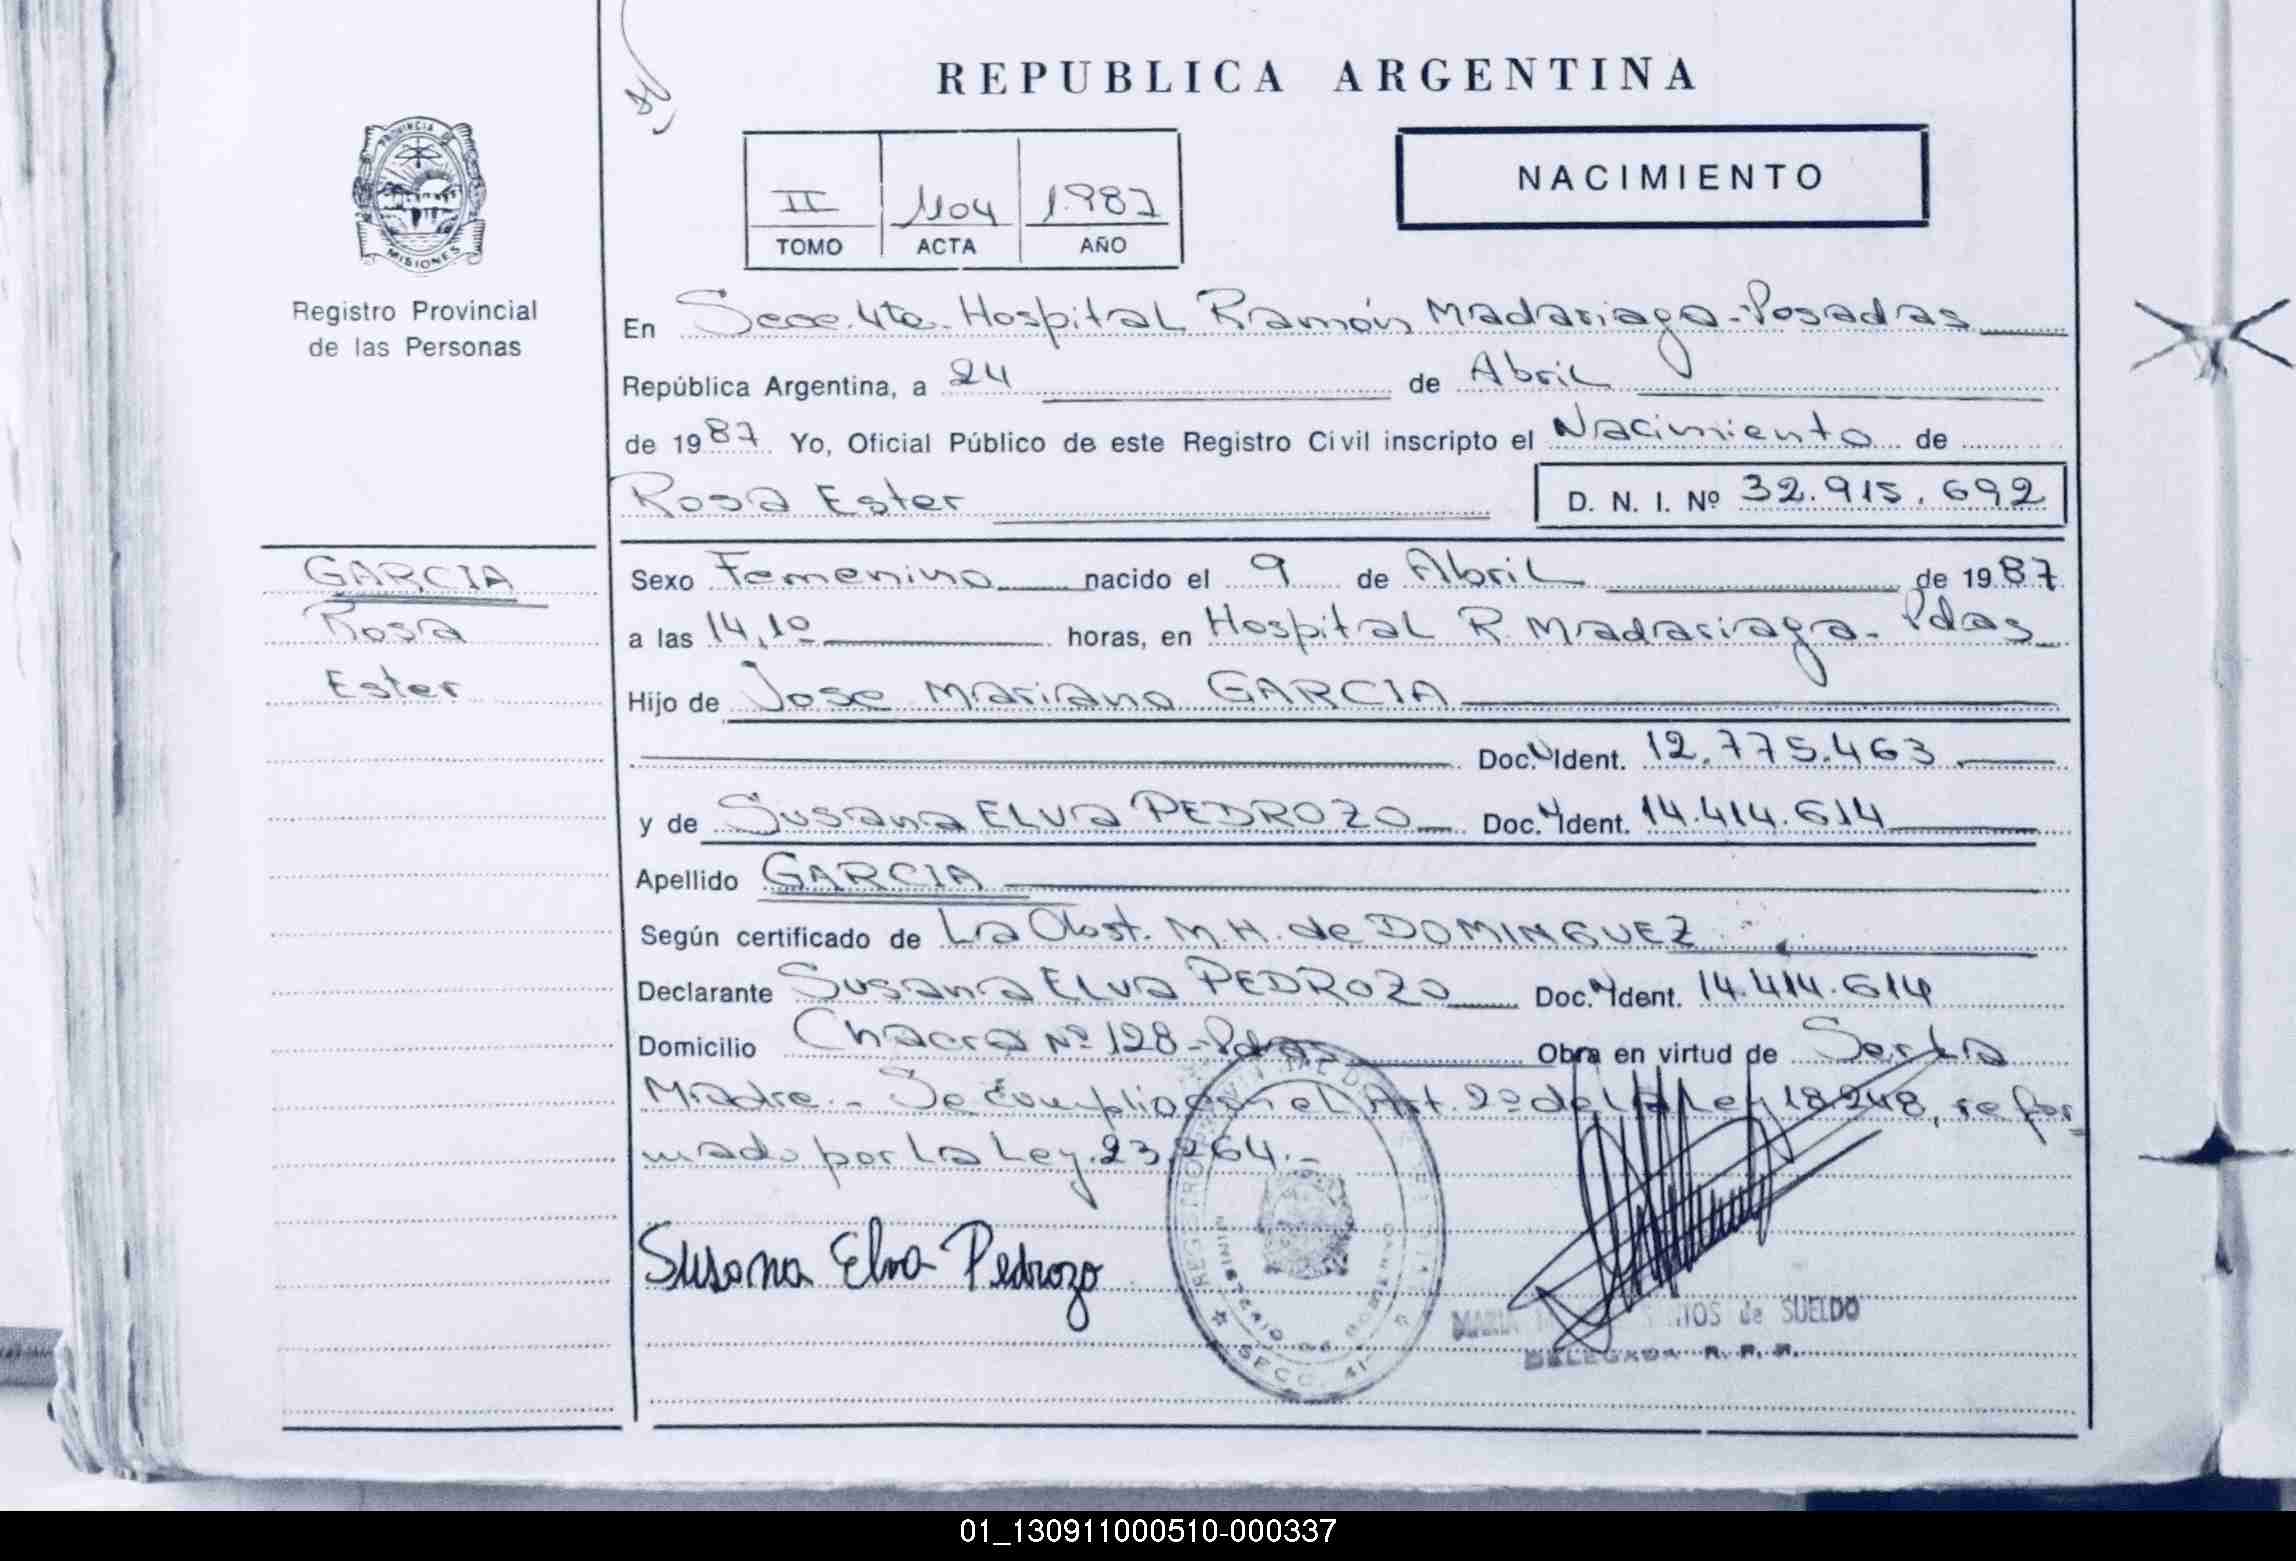 REPUBLICA ARGENTINA
PROVINCIA DE
MISIONES
Registro Provincial
de las Personas
II 1104 1.987
TOMO ACTA AÑO
NACIMIENTO
En Secc. 4ta. Hospital Ramón Madariaga - Posadas
República Argentina, a 24 de Abril
de 1987 Yo, Oficial Público de este Registro Civil inscripto el Nacimiento de
Rosa Ester D. N. I. Nº 32.915.692
GARCIA
Rosa
Ester
Sexo Femenino nacido el 9 de Abril de 1987
a las 14,10 horas, en Hospital R. Madariaga - Pdas
Hijo de Jose Mariano GARCIA
Doc. Ident. 12.775.463
y de Susana ELva PEDROZO Doc. Ident. 14.414.614
Apellido GARCIA
Según certificado de La Obst. M.H. de DOMINGUEZ
Declarante Susana ELva PEDROZO Doc. Ident. 14.414.614
Domicilio Chacra Nº 128 - Pdas Obra en virtud de Ser la
Madre. - Se cumplio con el Art. 2º de la Ley 18.248, refor
mado por La Ley 23.264. -
Susana Elva Pedrozo
REGISTRO
MINISTERIO DE GOBIERNO
SECC. 4ª
MARIA de SUELDO
DELEGADA R. P. P.
01_130911000510-000337